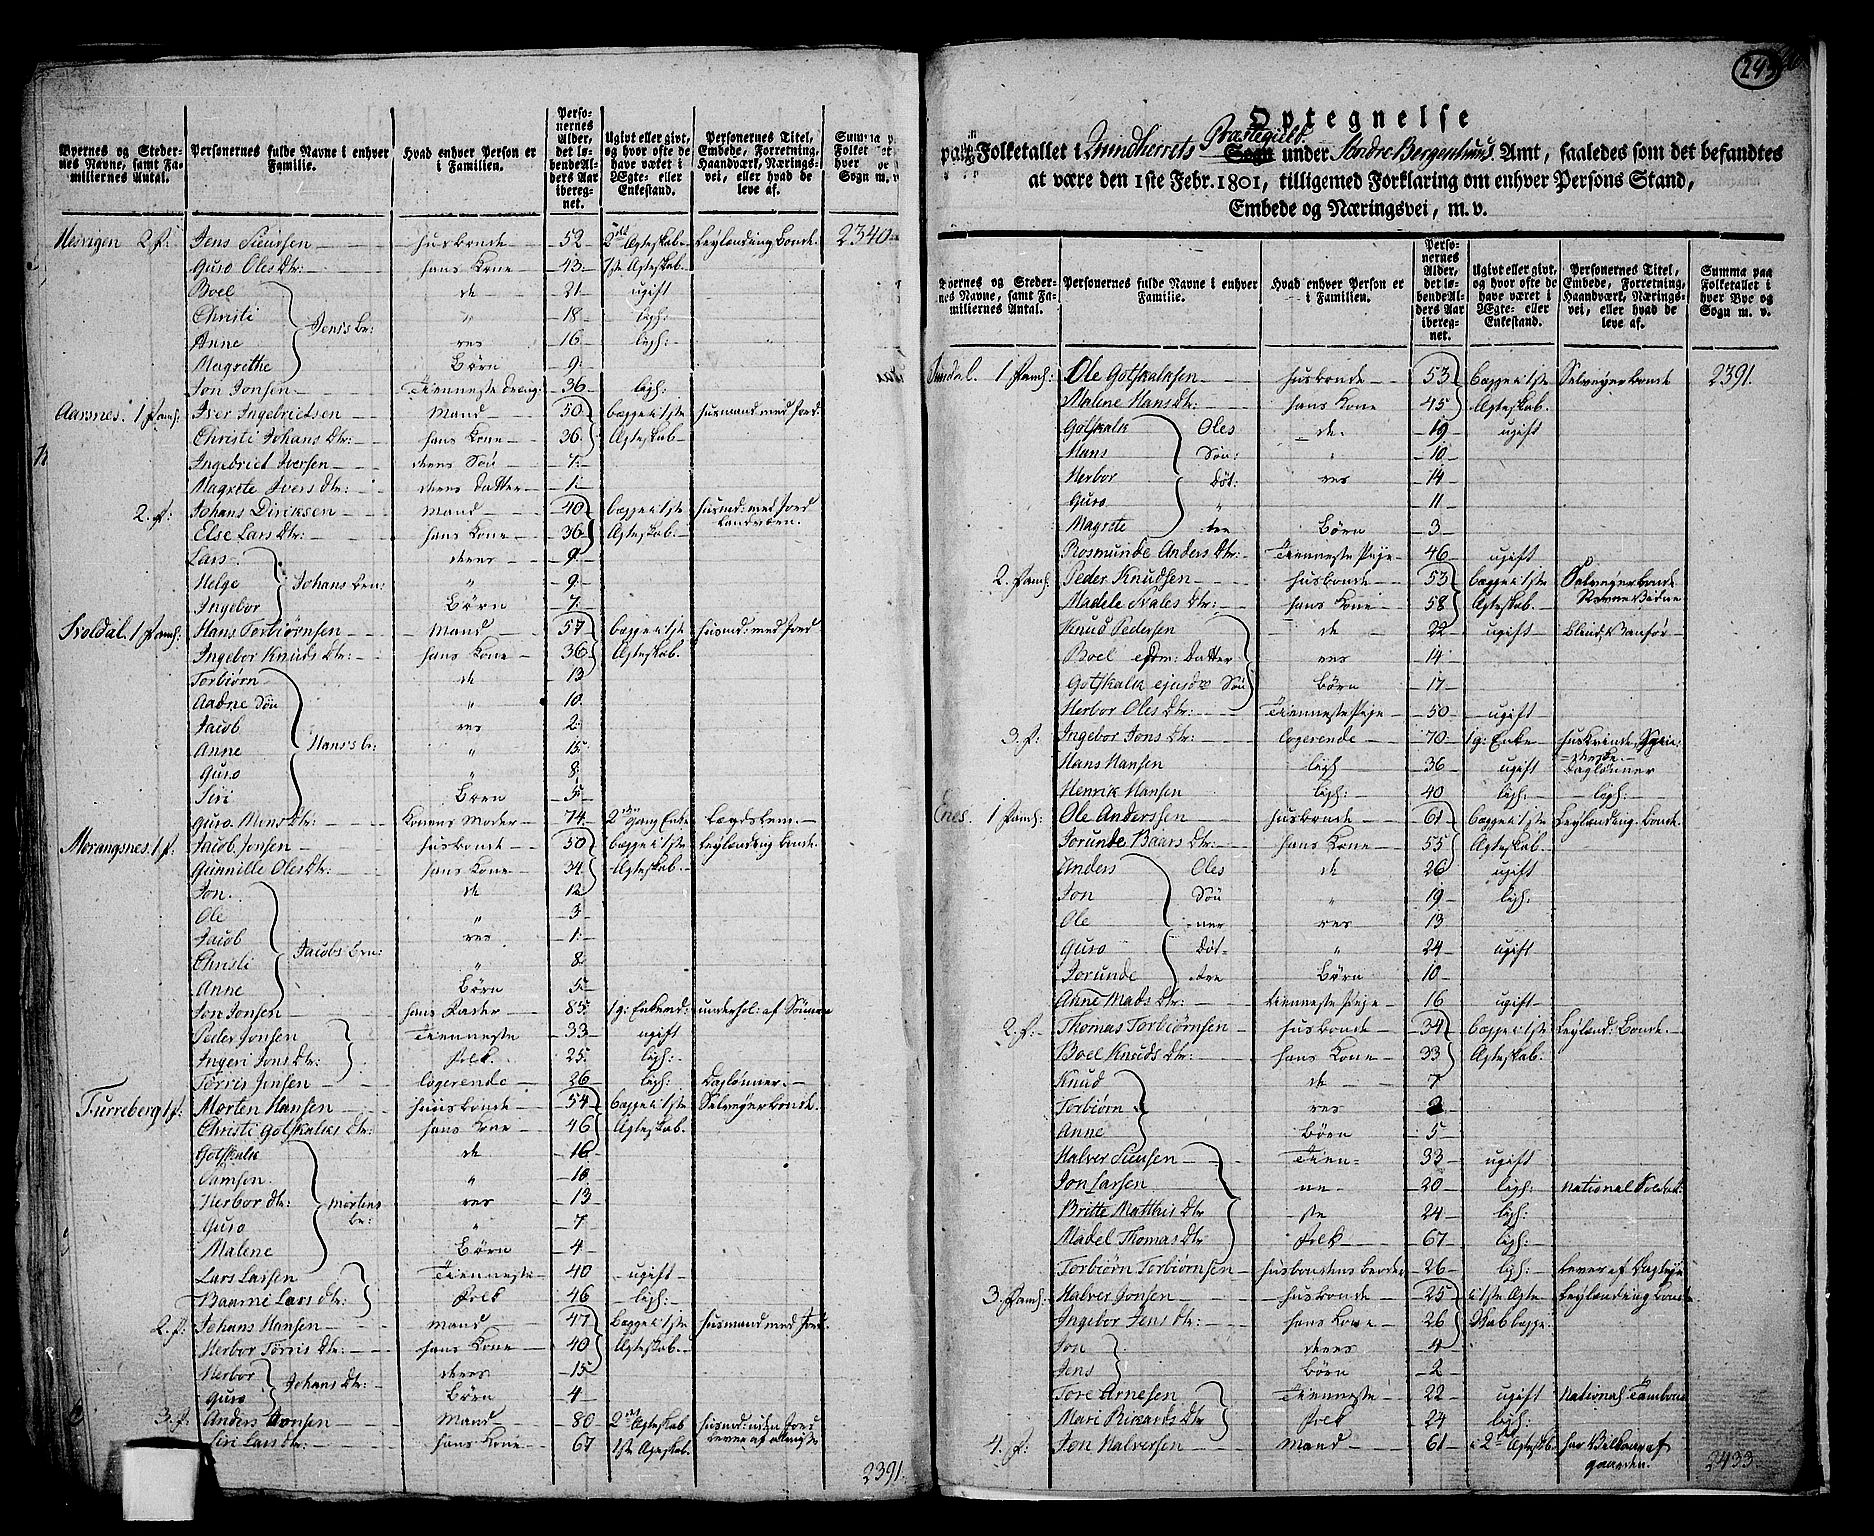 Byernes og Stedernes Navne, samt Familiernes Antal.
Personernes fulde Navne i enhver Familie.
Hvad enhver Person er i Familien.
Personernes Alder, det løbende Alders Aar iberegnet.
Ugivt eller givt, og hvor ofte de have været i Ægte- eller Enkestand.
Personernes Titel, Embede, Forretning, Haandværk, Næringsvei, eller hvad de leve af.
Summa paa Folket hver Sogn m. v.
2. f: Jens Siursen husbonde 52 2det Ægteskab Leylænding bonde 2340
Guro Oles Dtr: hans Kone 43 1ste Ægteskab
Boel de 21 ugift
Christi " 18 ligh:
Anne Jens's bø: res 16 ligh:
Magrethe Børn 9
Jon Jonsen Tienneste dreng 36 ligh:
Aarsnes. 1 Famh: Iver Ingebrietsen Mand 50 begge i 1ste husmand med jord
Christi Johans Dtr: hans Kone 36 Ægteskab
Ingebriet Iversen deres Søn 7
Magrete Ivers Dtr: deres Datter 1
2. f: Johans Diriksen Mand 40 begge i 1ste husmd: med jord
Else Lars Dtr: hans Kone 36 Ægteskab.
Lars deres 9
Helge Johans " 9
Ingebor Børn 7
1 Famh: Hans Torbiørnsen Mand 57 begge i 1ste husmd: med jord
Ingebor Knuds Dtr: hans Kone 36 Ægteskab.
Torbiørn de 13
Aadne Søn " 10
Jacob res 2
Anne Hans's bø: " 15
Guro " 8
Siri Børn 5
Guro Mons Dtr: Konens Moder 74 2den gang Enke Lægdslem
Morangsnes. 1 f: Jacob Jonsen husbonde 50 begge i 1ste Leylænding bonde
Gunnille Oles Dtr: hans Kone 34 Ægteskab.
Jon de 12
Ole " 3
Jacob res 1
Christi Jacobs " 8
Anne Børn 5
Jon Jonsen hans Fader 85 1 g: Enkemd: underhol: af Sønnen
Peder Jonsen Tienneste 33 ugift
Ingeri Jons Dtr: Folk 25 ligh:
Torris Jonsen Logerende 26 ligh: Daglønner
Furreberg 1 f. Morten Hansen husbonde 54 begge i 1ste Selveyerbonde
Christi Gotskalks Dtr: hans Kone 46 Ægteskab.
Gotskalk de 16
Samsen " 10
Herbor Dtr: Mortens bø: res 13
Guro " 7
Malene Børn 4
Lars Larsen Tienneste 40 ugift
Lars Dtr: Folk 46 ligh:
2. f: Johans Hansen Mand 47 begge i 1ste husmand med jord
Herbor Torris Dtr: hans Kone 40 Ægteskab
Herbor Johans Dtr: deres 15
Guro Børn 4
3. f. Anders Jonsen Mand 80 2det Ægteskab husmd: uden jord
Siri Lars Dtr: hans Kone 67 1ste Ægteskab. Lever af almisse
2391.
243
Optegnelse
paa Folketallet i Qvindherrets Præstegield Sogn under Søndre Bergenhuus Amt, saaledes som det befandtes
at være den 1ste Febr. 1801, tilligemed Forklaring om enhver Persons Stand,
Embede og Næringsvei, m. v.
Byernes og Stedernes Navne, samt Familiernes Antal.
Personernes fulde Navne i enhver Familie.
Hvad enhver Person er i Familien.
Personernes Alder, det løbende Alders Aar iberegnet.
Ugivt eller givt, og hvor ofte de have været i Ægte- eller Enkestand.
Personernes Titel, Embede, Forretning, Haandværk, Næringsvei, eller hvad de leve af.
Summa paa Folketallet i hver Bye og Sogn m. v.
Sundal. 1 Famh: Ole Gotskalksen husbonde 53 begge i 1ste Selveyerbonde 2391.
Malene Hans Dtr: hans Kone 45 Ægteskab.
Gotskalk Oles de 19 ugift
Hans Søn: " 10
Herbor Døt: res 14
Guro " 11
Magrete tre Børn 3
Rosmunde Anders Dtr: Tienneste Pige 46 ugift
2. Famh: Peder Knudsen husbonde 53 begge i 1ste Selveyerbonde
Madele Dtr: hans Kone 58 Ægteskab.
Knud Pedersen de 22 ugift Blind, Vanfør
Boel Datter res 14
Gotskalk ejusdm Søn Børn 17
Herbor Oles Dtr: Tienneste Pige 50 ugift
3. f: Ingebor Jons Dtr: Logerende 70 1 g: Enke
Hans Hansen ligh 36 ugift Daglønner
Henrik Hansen ligh: 40 ligh: ligh:
Enes. 1 Famh: Ole Anderssen husbonde 61 begge i 1ste Leylænding bonde
Jorunde Baars Dtr: hans Kone 55 Ægteskab.
Anders Oles de 26 ugift
Jon Søn " 19 ligh:
Ole ner res 13
Guro Døt " 24 ugift
Jorunde tre Børn 10
Anne Mads Dtr: Tienneste Pige 16 ugift
2. f. Thomas Torbiørnsen husbonde 34 begge i 1ste Leylænd: Bonde
Boel Knuds Dtr: hans Kone 33 Ægteskab.
Knud de 7
Torbiørn res 2
Anne Børn 5
Halver Siursen Tien 33 ugift
Jon Larsen ne 20 ligh: National Soldat:
Britte Matthis Dtr ste 24 ligh:
Madel Thomas Dtr Folk 67 ligh:
Torbiørn Torbiørnsen husbondens broder 26 ligh: Lever af
3. Famh: Halver Jonsen husbonde 25 i 1ste Ægte Leylænding bonde
Ingebor Jens Dtr: hans Kone 26 skab begge
Jon deres 4
Jens Børn 2
Tore Arnesen Tienneste 22 ugift National Tambour
Mari Rikards Dtr Folk 24 ligh:
4. f: Jon Halversen Mand 61 i 2det Ægteskb. har Vilkaar af gaarden.
2433